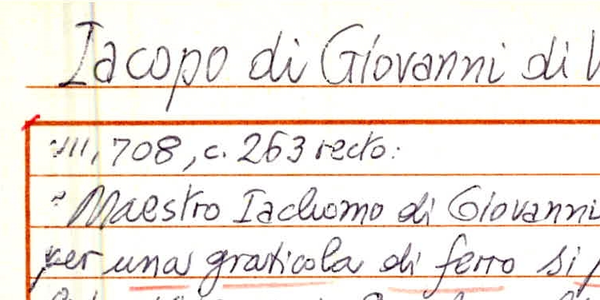 Iacopo di Giovanni di
VIII, 708, c. 263 recto:
" Maestro Iachomo di Giovanni
per una graticola di ferro si